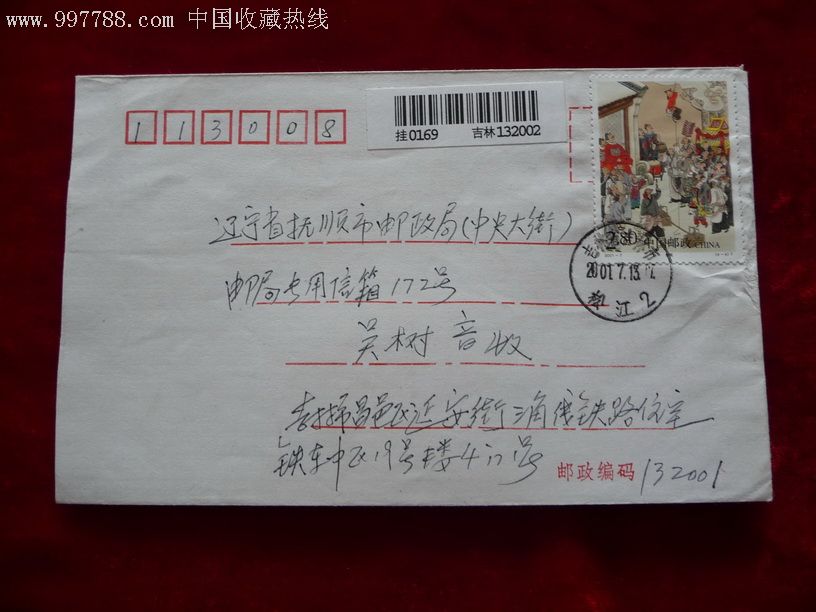 www.997788.com 中国收藏热线
113008
挂0169 吉林132002
2.80 中国邮政 CHINA
辽宁省抚顺市邮政局(中央大街)
邮局专用信箱172号
吴树音收
2001.7.13.12
江2
吉林市昌邑区延安街三角线铁路住宅
铁东中区19号楼4门1号
邮政编码 132001